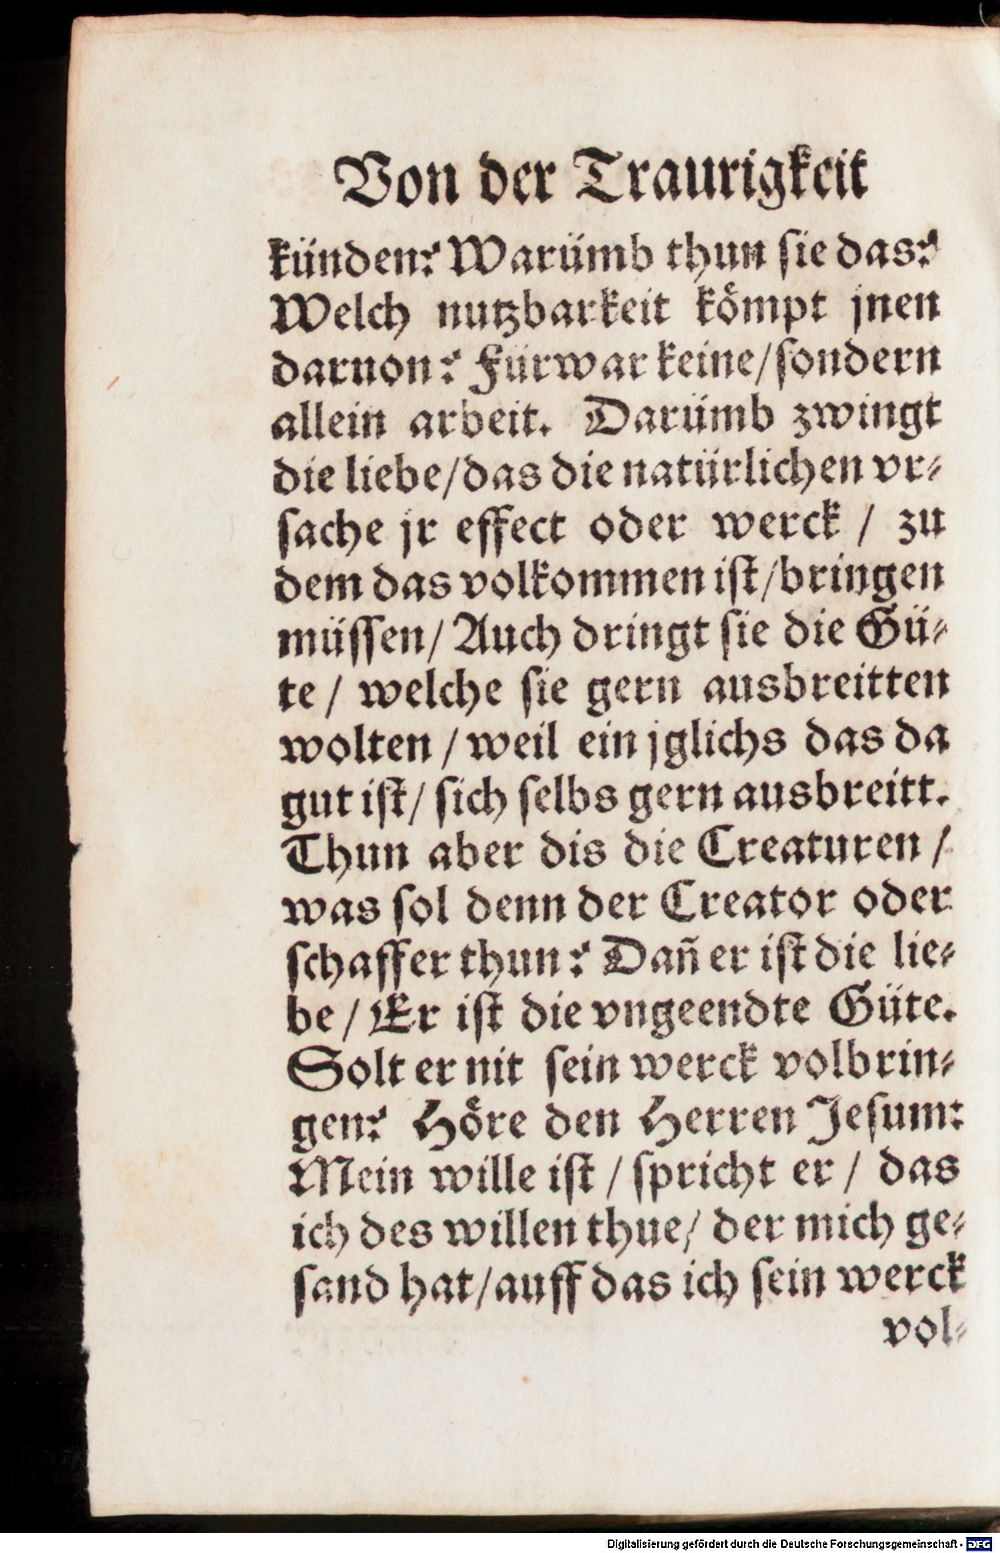 Von der Traurigkeit
künden? Warümb thun sie das?
Welch nutzbarkeit kömpt jnen
daruon? Fürwar keine/sondern
allein arbeit. Darümb zwingt
die liebe/das die natürlichen vr⸗
sache jr effect oder werck / zu
dem das volkommen ist/bringen
müssen/ Auch dringt sie die Gü⸗
te / welche sie gern ausbreitten
wolten / weil ein jglichs das da
gut ist/ sich selbs gern ausbreitt.
Thun aber dis die Creaturen /
was sol denn der Creator oder
schaffer thun? Dañ er ist die lie⸗
be / Er ist die vngeendte Güte.
Solt er nit sein werck volbrin⸗
gen? Höre den Herren Jesum:
Mein wille ist / spricht er / das
ich des willen thue/ der mich ge⸗
sand hat/auff das ich sein werck
vol⸗
Digitalisierung gefördert durch die Deutsche Forschungsgemeinschaft - DFG